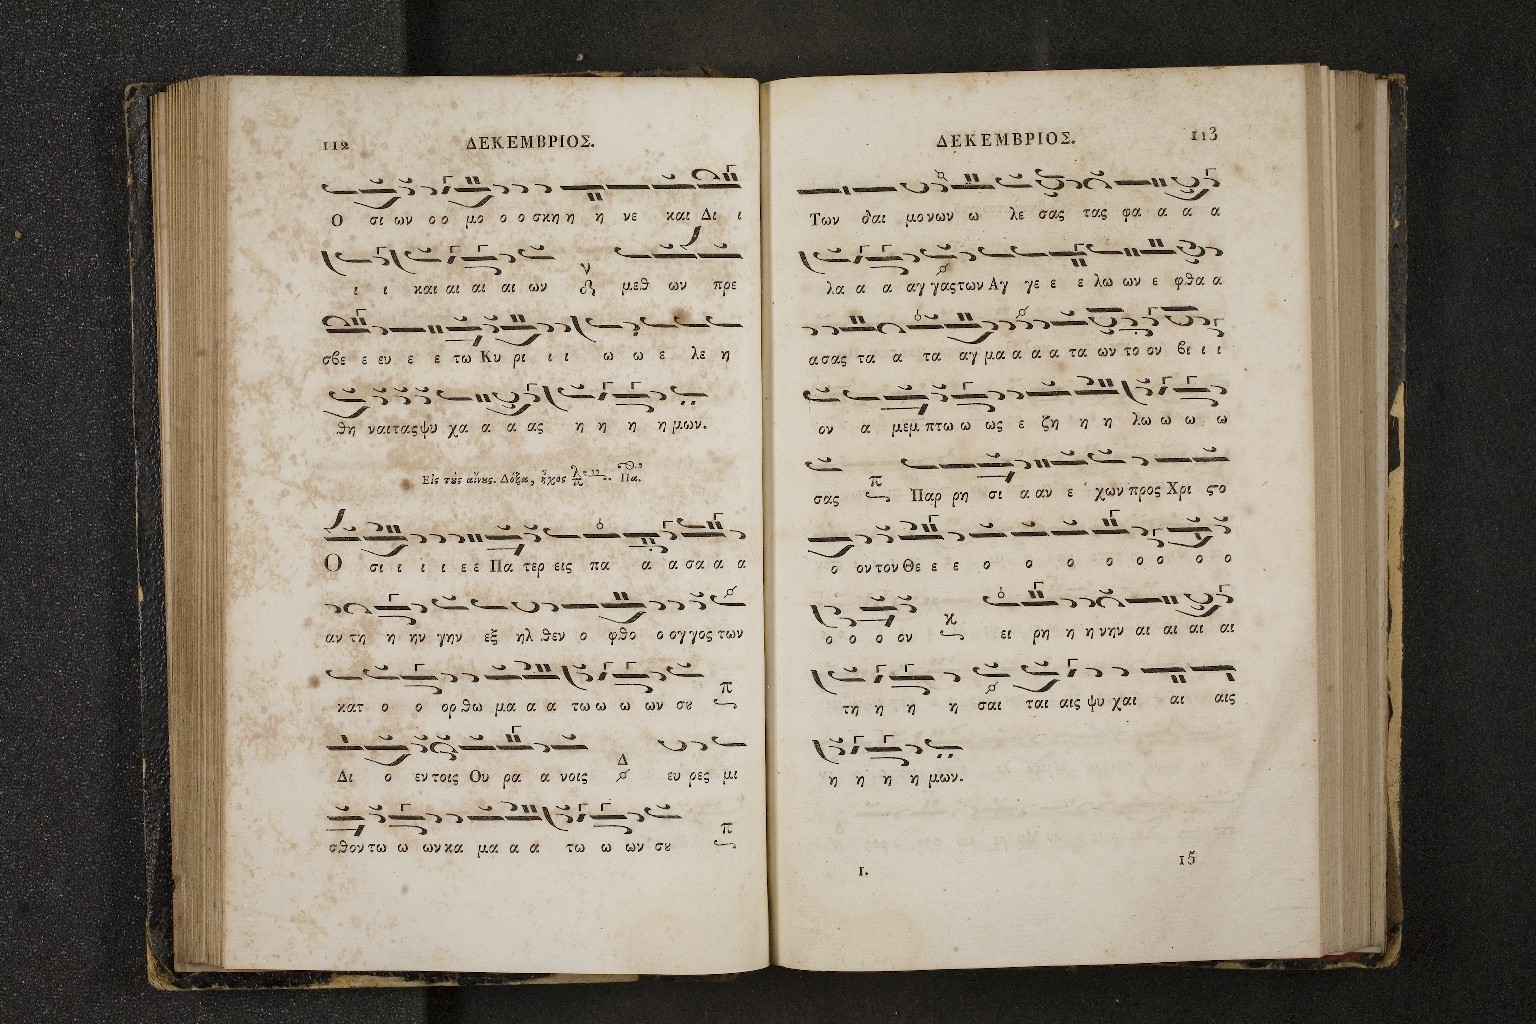 112 ΔΕΚΕΜΒΡΙΟΣ.
Ο σι ων ο ο μο ο ο σκη η η νε και Δι ι
ι ι και αι αι αι ων μεθ ων πρε
σβε ε ευ ε ε τω Κυ ρι ι ι ω ω ε λε η
θη ναι τας ψυ χα α α ας η η η η μων.
Εἰς τȣ̀ς αἴνȣς. Δόξα, ἦχος Πα.
Ο σι ι ι ι ε ε Πα τερ εις πα α α σα α α
αν τη η ην γην εξ ηλ θεν ο φθο ο ογ γος των
κατ ο ο ορ θω μα α α τω ω ω ων σȣ π
Δι ο εν τοις Ου ρα α νοις Δ ευ ρες μι
σθον τω ω ων κα μα α α τω ω ων σȣ π
ΔΕΚΕΜΒΡΙΟΣ. 113
Των δαι μο νων ω λε σας τας φα α α α
λα α α αγ γας των Αγ γε ε ε λω ων ε φθα α
α σας τα α τα αγ μα α α α τα ων το ον βι ι ι
ον α μεμ πτω ω ως ε ζη η η λω ω ω ω
σας π Παρ ρη σι α αν ε χων προς Χρι ϛο
ο ον τον Θε ε ε ο ο ο ο ο ο ο ο
ο ο ο ον κ ει ρη η η νην αι αι αι αι
τη η η η σαι ται αις ψυ χαι αι αις
η η η η μων.
I. 15